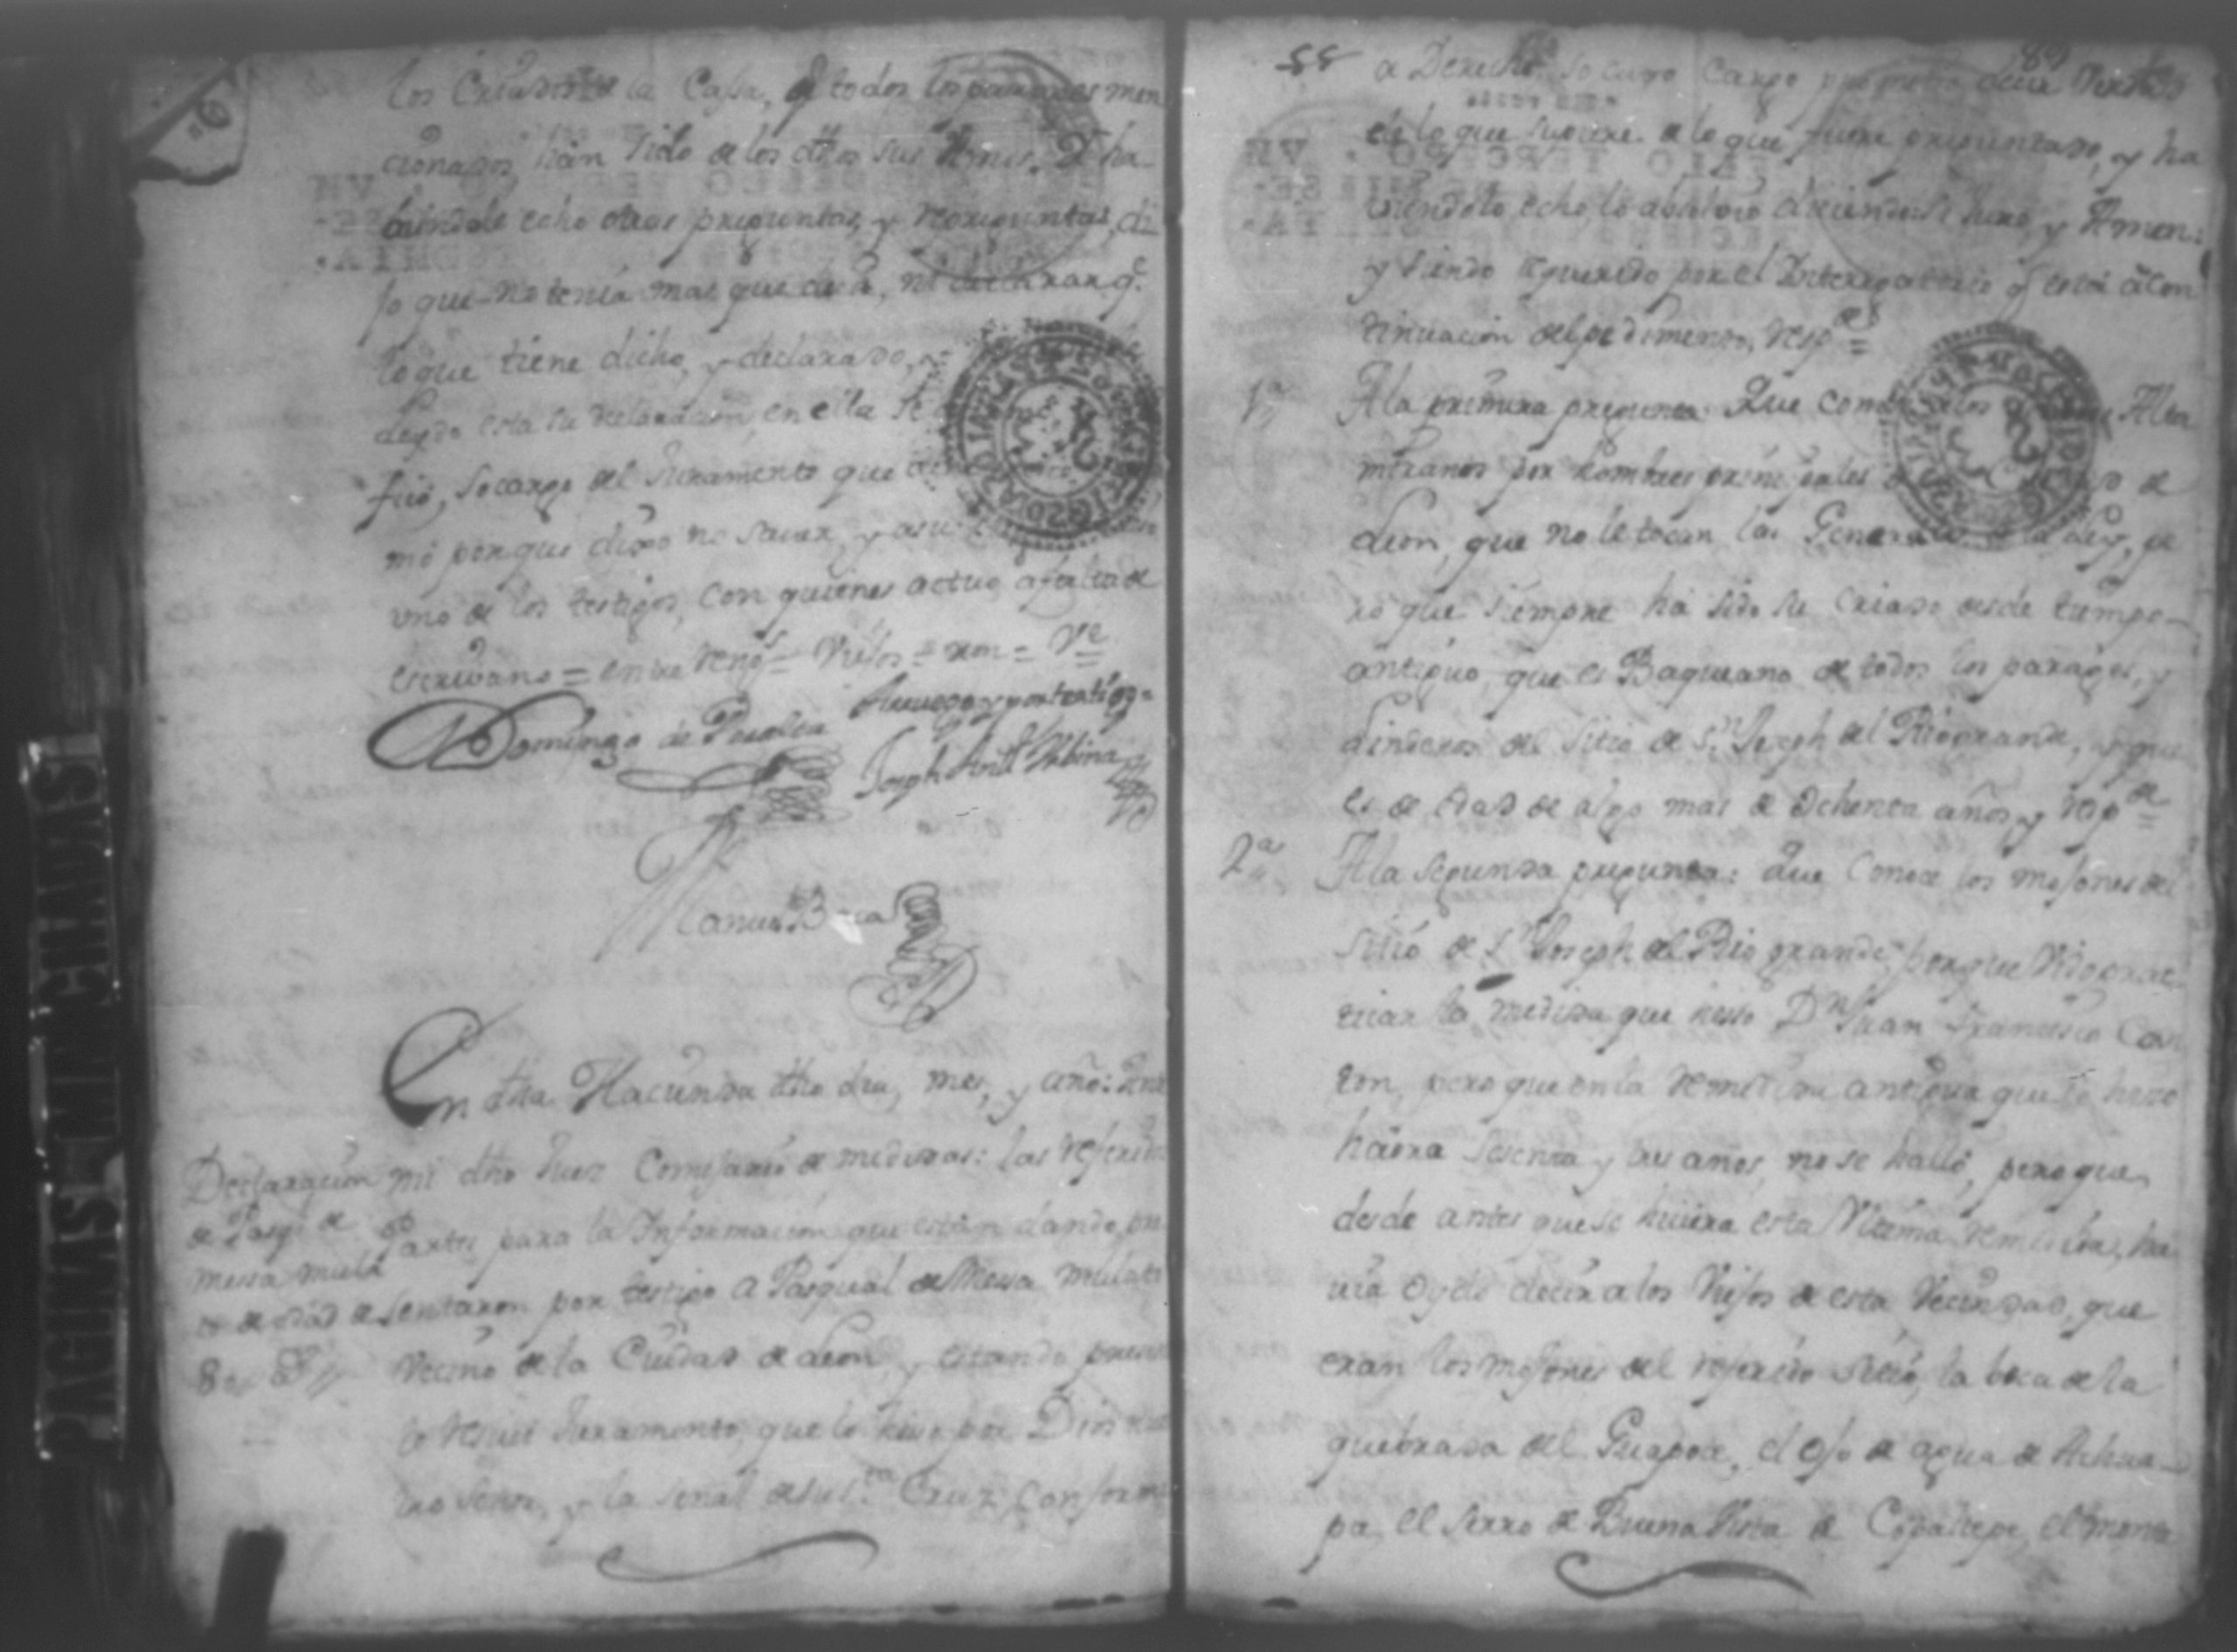 los Criados de la Casa, q todos los parages men
cionados han sido de los dhos sus Amos. Y ha-
viendole echo otras preguntas, y repreguntas, di
jo que no tenia mas que decir, ni declarar q.e
lo que tiene dicho, y declarado, y
Leydo esta su declaracion, en ella se
fico, socargo del Juramento que
mó porque dixo no saver, y
uno de los testigos, con quienes actuo á falta de
escrivano = entre reng.s = viejos = ron = V.e
Domingo de Peralta
A ruego y por testigo =
Joseph Ant.o Urbina
Manuel Baca
En dha Hacienda dho dia, mes, y año: Ante
mi dho Juez Comisario de medidas: las referidas
partes para la Informacion que están dando, pre
sentaron por testigo a Pasqual de Messa mulato
vecino de la Ciudad de Leon, y estando presen
te resivi Juramento, que lo hiso por Dios nu
tro Señor, y la señal de su S.ma Cruz, conforme
Declaracion
de Pasq.l de
messa mula
to de edad de
80 a.s
PAGINAS MANCHADAS
55
89
a Derecho, so cuyo cargo prometio decir verdad
de lo que supiere de lo que fuere preguntado, y ha
viendolo echo, lo absolvio diciendo si juro, y Amen:
y siendo requerido por el Interrogatorio q está á con
tinuacion del pedimento, resp.de
1.a A la primera pregunta: Que conose a los Alta
miranos por hombres principales de
Leon, que no le tocan las Generales de la Ley, pe
ro que siempre há sido su criado desde tiempo
antiguo, que es Baqueano de todos los parages, y
Linderos del sitio de S.n Joseph del Rio grande, y que
es de edad de algo mas de ochenta años, y resp.de
2.a A la segunda pregunta: Que conose los mojones del
sitio de S.n Joseph del Rio grande, porque vido prac
ticar la medida que hisso D.n Juan Francisco Cas
ton, pero que en la remedida antigua que se hizo
haora sesenta y tres años, no se halló, pero que
desde antes que se hiciera esta ultima remedida, ha
via oydo decir a los viejos de esta vecindad, que
eran los mojones del referido sitio, la boca de la
quebrada del Guapote, el ojo de agua de Achua-
pa, el serro de Buena Vista de Copaltepe, el monte